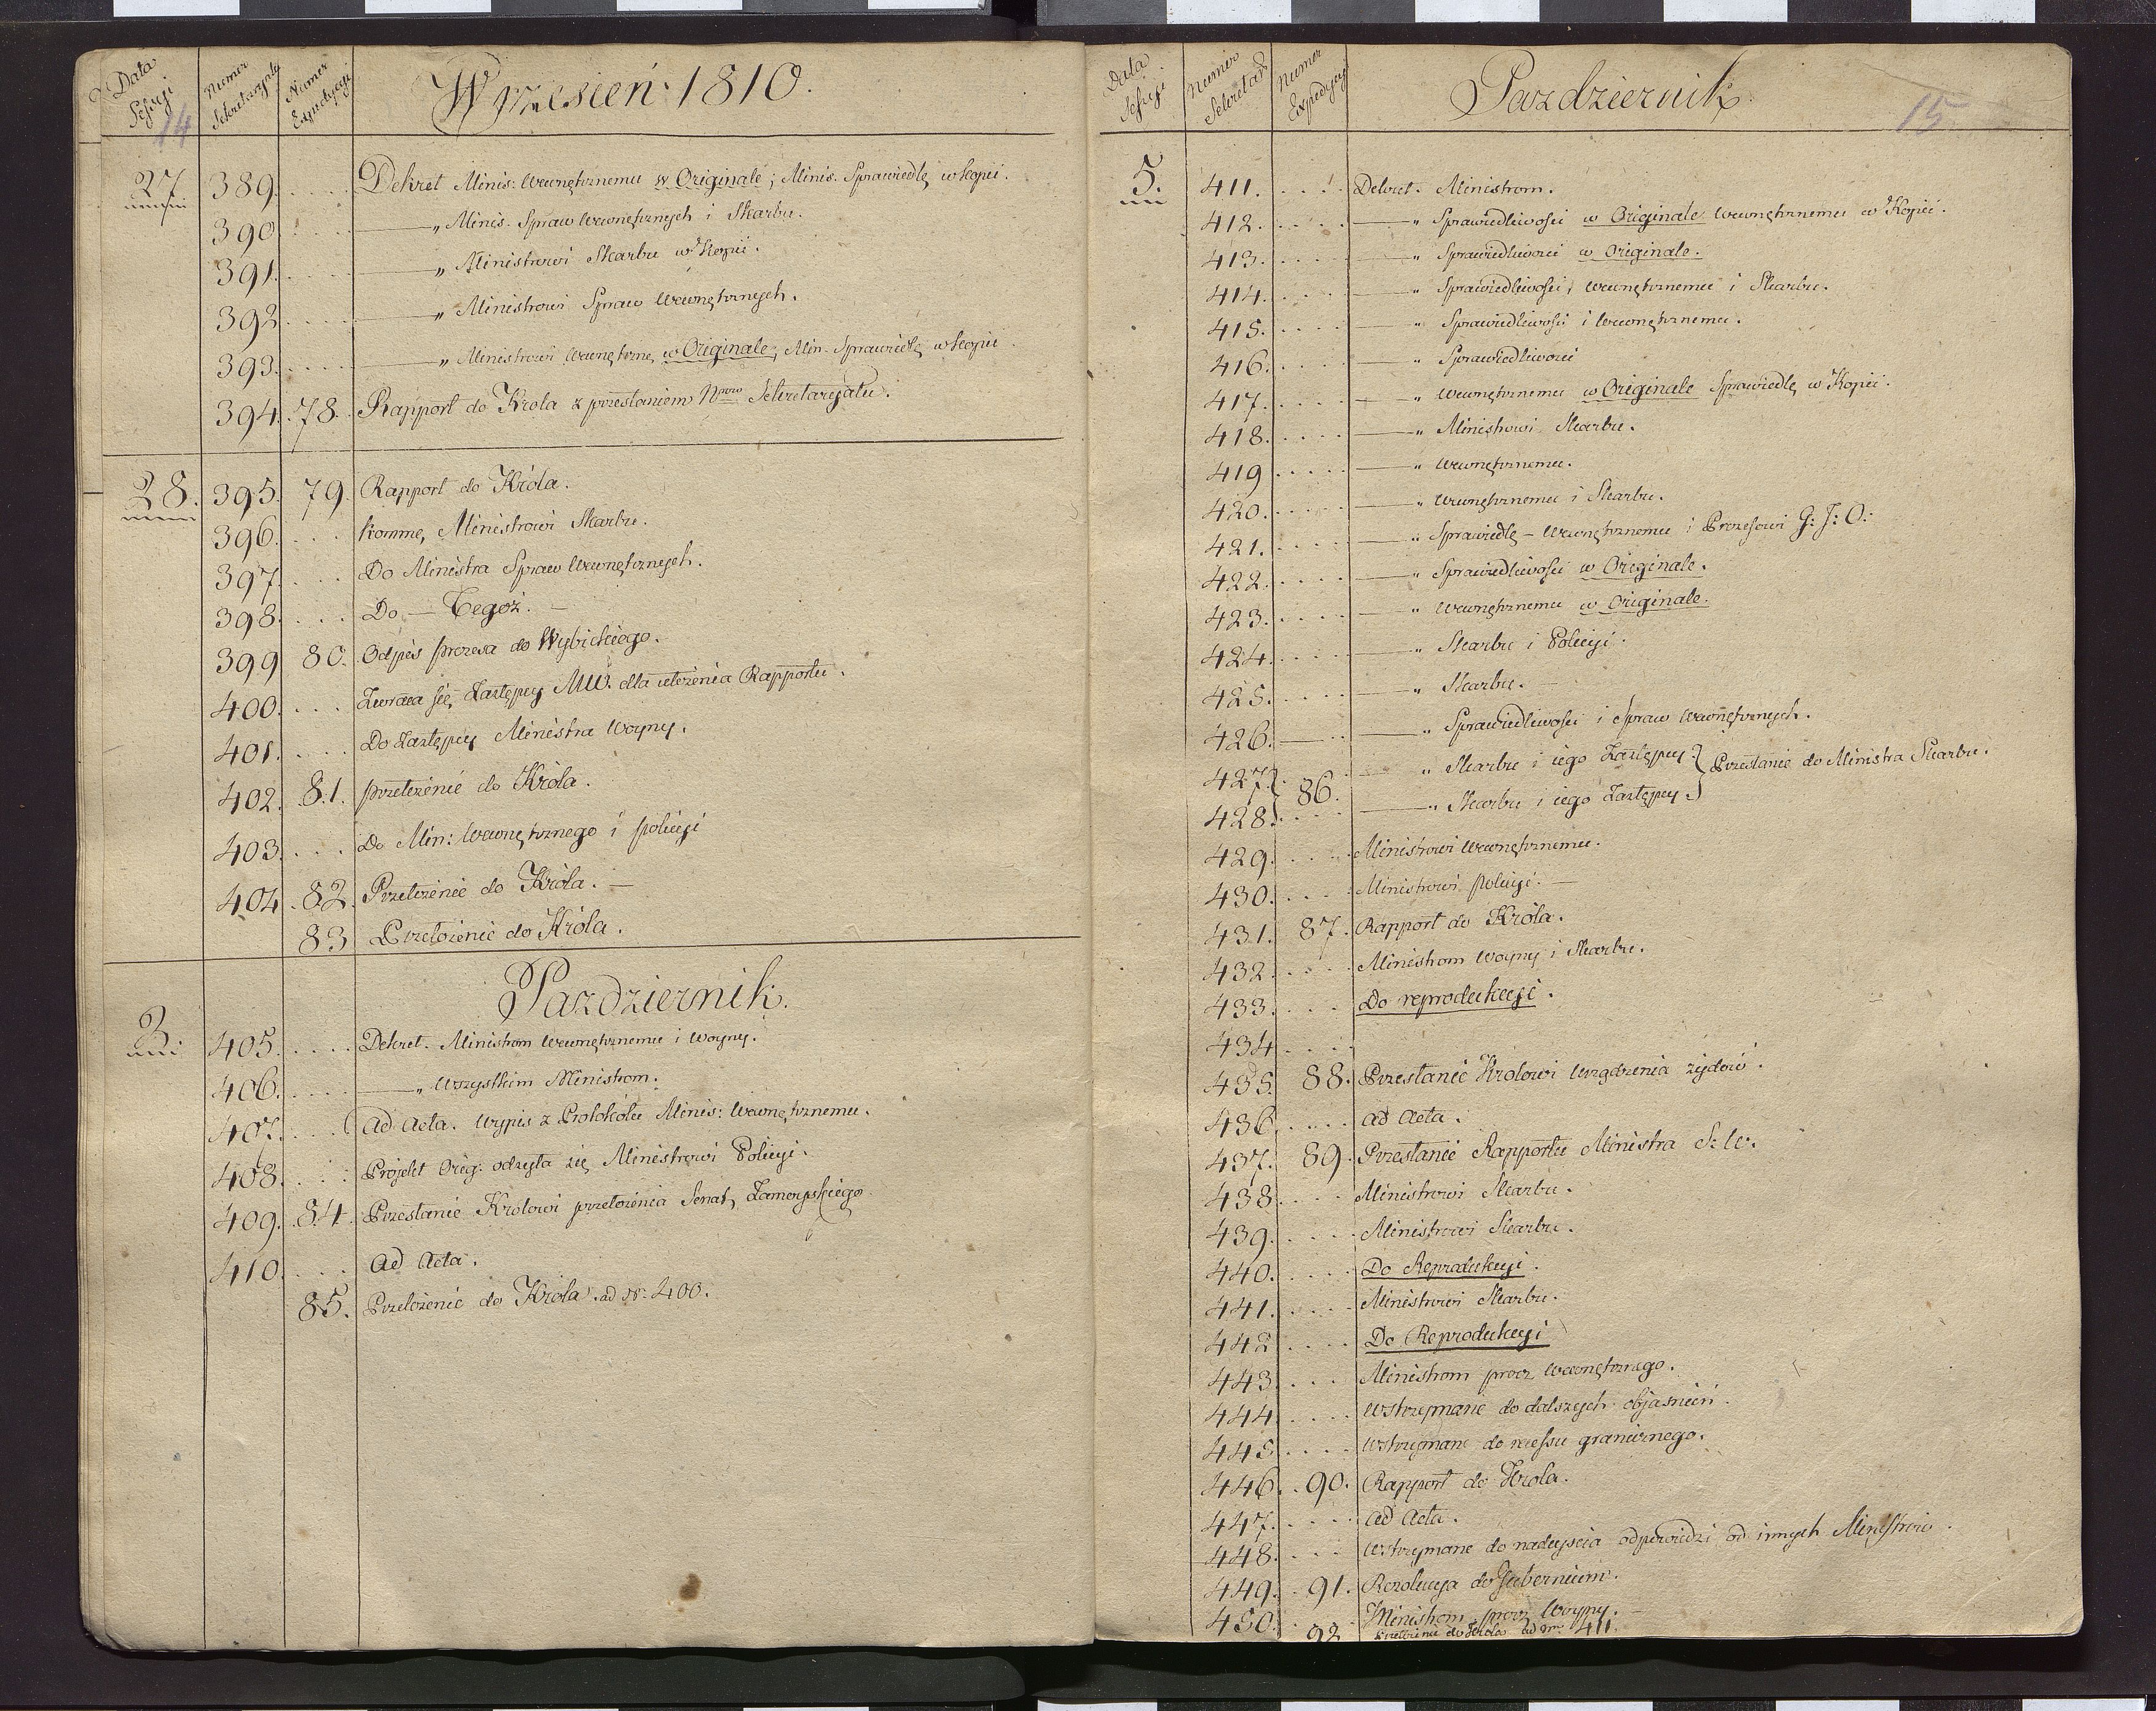 Data Sessyi
Numer Sekretaryatu
Numer Expedycyi
Wrzesień 1810.
14
27. 389. Dekret Minis: Wewnętrznemu w Originale; Minis. Sprawiedlę w kopii.
390. — „ Minis. Spraw Wewnętrznych i Skarbu.
391. — „ Ministrowi Skarbu w Kopii.
392. — „ Ministrowi Spraw Wewnętrznych.
393. — „ Ministrowi Wewnętrzne, w Originale, Min. Sprawiedlę w kopii.
394. 78. Rapport do Krola z przesłaniem Nrow Sekretaryatu.
28. 395. 79. Rapport do Króla.
396. komme, Ministrowi Skarbu.
397. Do Ministra Spraw Wewnętrznych.
398. Do — Tegoż. —
399 80. Odpis prezesa do Wybickiego.
400. Zwraca się Zastępcy MW. dla ułożenia Rapportu.
401. Do Zastępcy Ministra Woyny.
402. 81. przełożenié do Króla.
403. Do Min: Wewnętrznego i policyi
404 82. Przełożenié do Króla. —
83 Przełożenié do Króla.
Pazdziernik.
3. 405. Dekret. Ministrom Wewnętrznemu i Woyny.
406. — „ Wszystkim Ministrom.
407. Ad Acta. Wypis z Protokółu Minis: Wewnętrznemu.
408. Projekt Orig: odsyła się Ministrowi Policyi.
409. 84. Przesłanié Krolowi przełożenia Senat, Zamoyskiego
410. Ad Acta.
85. Przełożenié do Króla. ad N: 400.
Data Sessyi
Numer Sekretar
Numer Expedycyi
Pazdziernik.
15
5. 411. Dekret. Ministrom.
412. — „ Sprawiedliwości w Originale Wewnętrznemu w Kopii.
413. — „ Sprawiedliwości w Originale.
414. — „ Sprawiedliwości, Wewnętrznemu i Skarbu.
415. — „ Sprawiedliwości i Wewnętrznemu.
416. — „ Sprawiedliwości
417. — „ Wewnętrznemu w Originale Sprawiedlę w Kopii.
418. — „ Ministrowi Skarbu.
419 — „ Wewnętrznemu.
420. — „ Wewnętrznemu i Skarbu.
421. — „ Sprawiedlę — Wewnętrznemu i Prezesowi G: I: O:
422. — „ Sprawiedliwości w Originale.
423. — „ Wewnętrznemu w Originale.
424. — „ Skarbu i Policyi.
425. — „ Skarbu. —
426. — „ Sprawiedliwości i Spraw Wewnętrznych.
427. 86. — „ Skarbu i iego Zastępcy. } Przesłanié do Ministra Skarbu.
428. — „ Skarbu i iego Zastępcy.
429. Ministrowi Wewnętrznemu.
430. Ministrowi policyi. —
431. 87. Rapport do Króla.
432. Ministrom Woyny i Skarbu.
433. Do reprodukcyi.
434
435. 88. Przesłanié Krolowi Urządzenia żydów.
436. Ad Acta.
437. 89. Przesłanié Rapportu Ministra S: W:.
438. Ministrowi Skarbu.
439. Ministrowi Skarbu.
440. Do Reprodukcyi.
441. Ministrowi Skarbu.
442 Do Reprodukcyi
443 Ministrom procz Wewnętrznego.
444. Wstrzymané do dalszych objasnień.
445 Wstrzymané do granicznego.
446. 90. Rapport do Krola.
447. Ad Acta.
448. Wstrzymané do nadeyscia odpowiedzi od innych Ministrów.
449. 91. Rezolucya do Gubernium.
450. Ministrom procz Woyny. —
92 przełożenié do Króla ad Nrm 411.